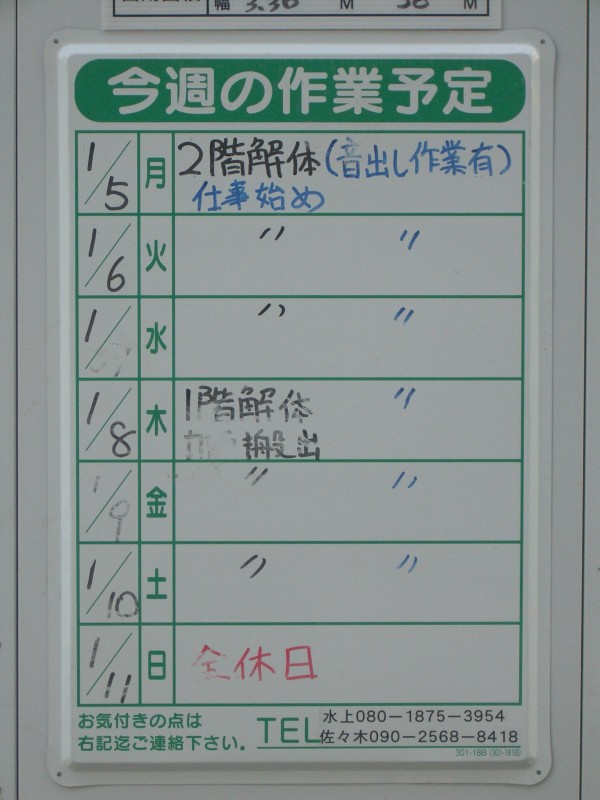 幅 3.36 M 56 M
今週の作業予定
1/5 月 2階解体(音出し作業有)
仕事始め
1/6 火 〃 〃
1/ 水 〃 〃
1/8 木 1階解体 〃
搬出
1/9 金 〃 〃
1/10 土 〃 〃
1/11 日 全休日
お気付きの点は
右記迄ご連絡下さい。
TEL
水上080-1875-3954
佐々木090-2568-8418
301-18B (301-181B)